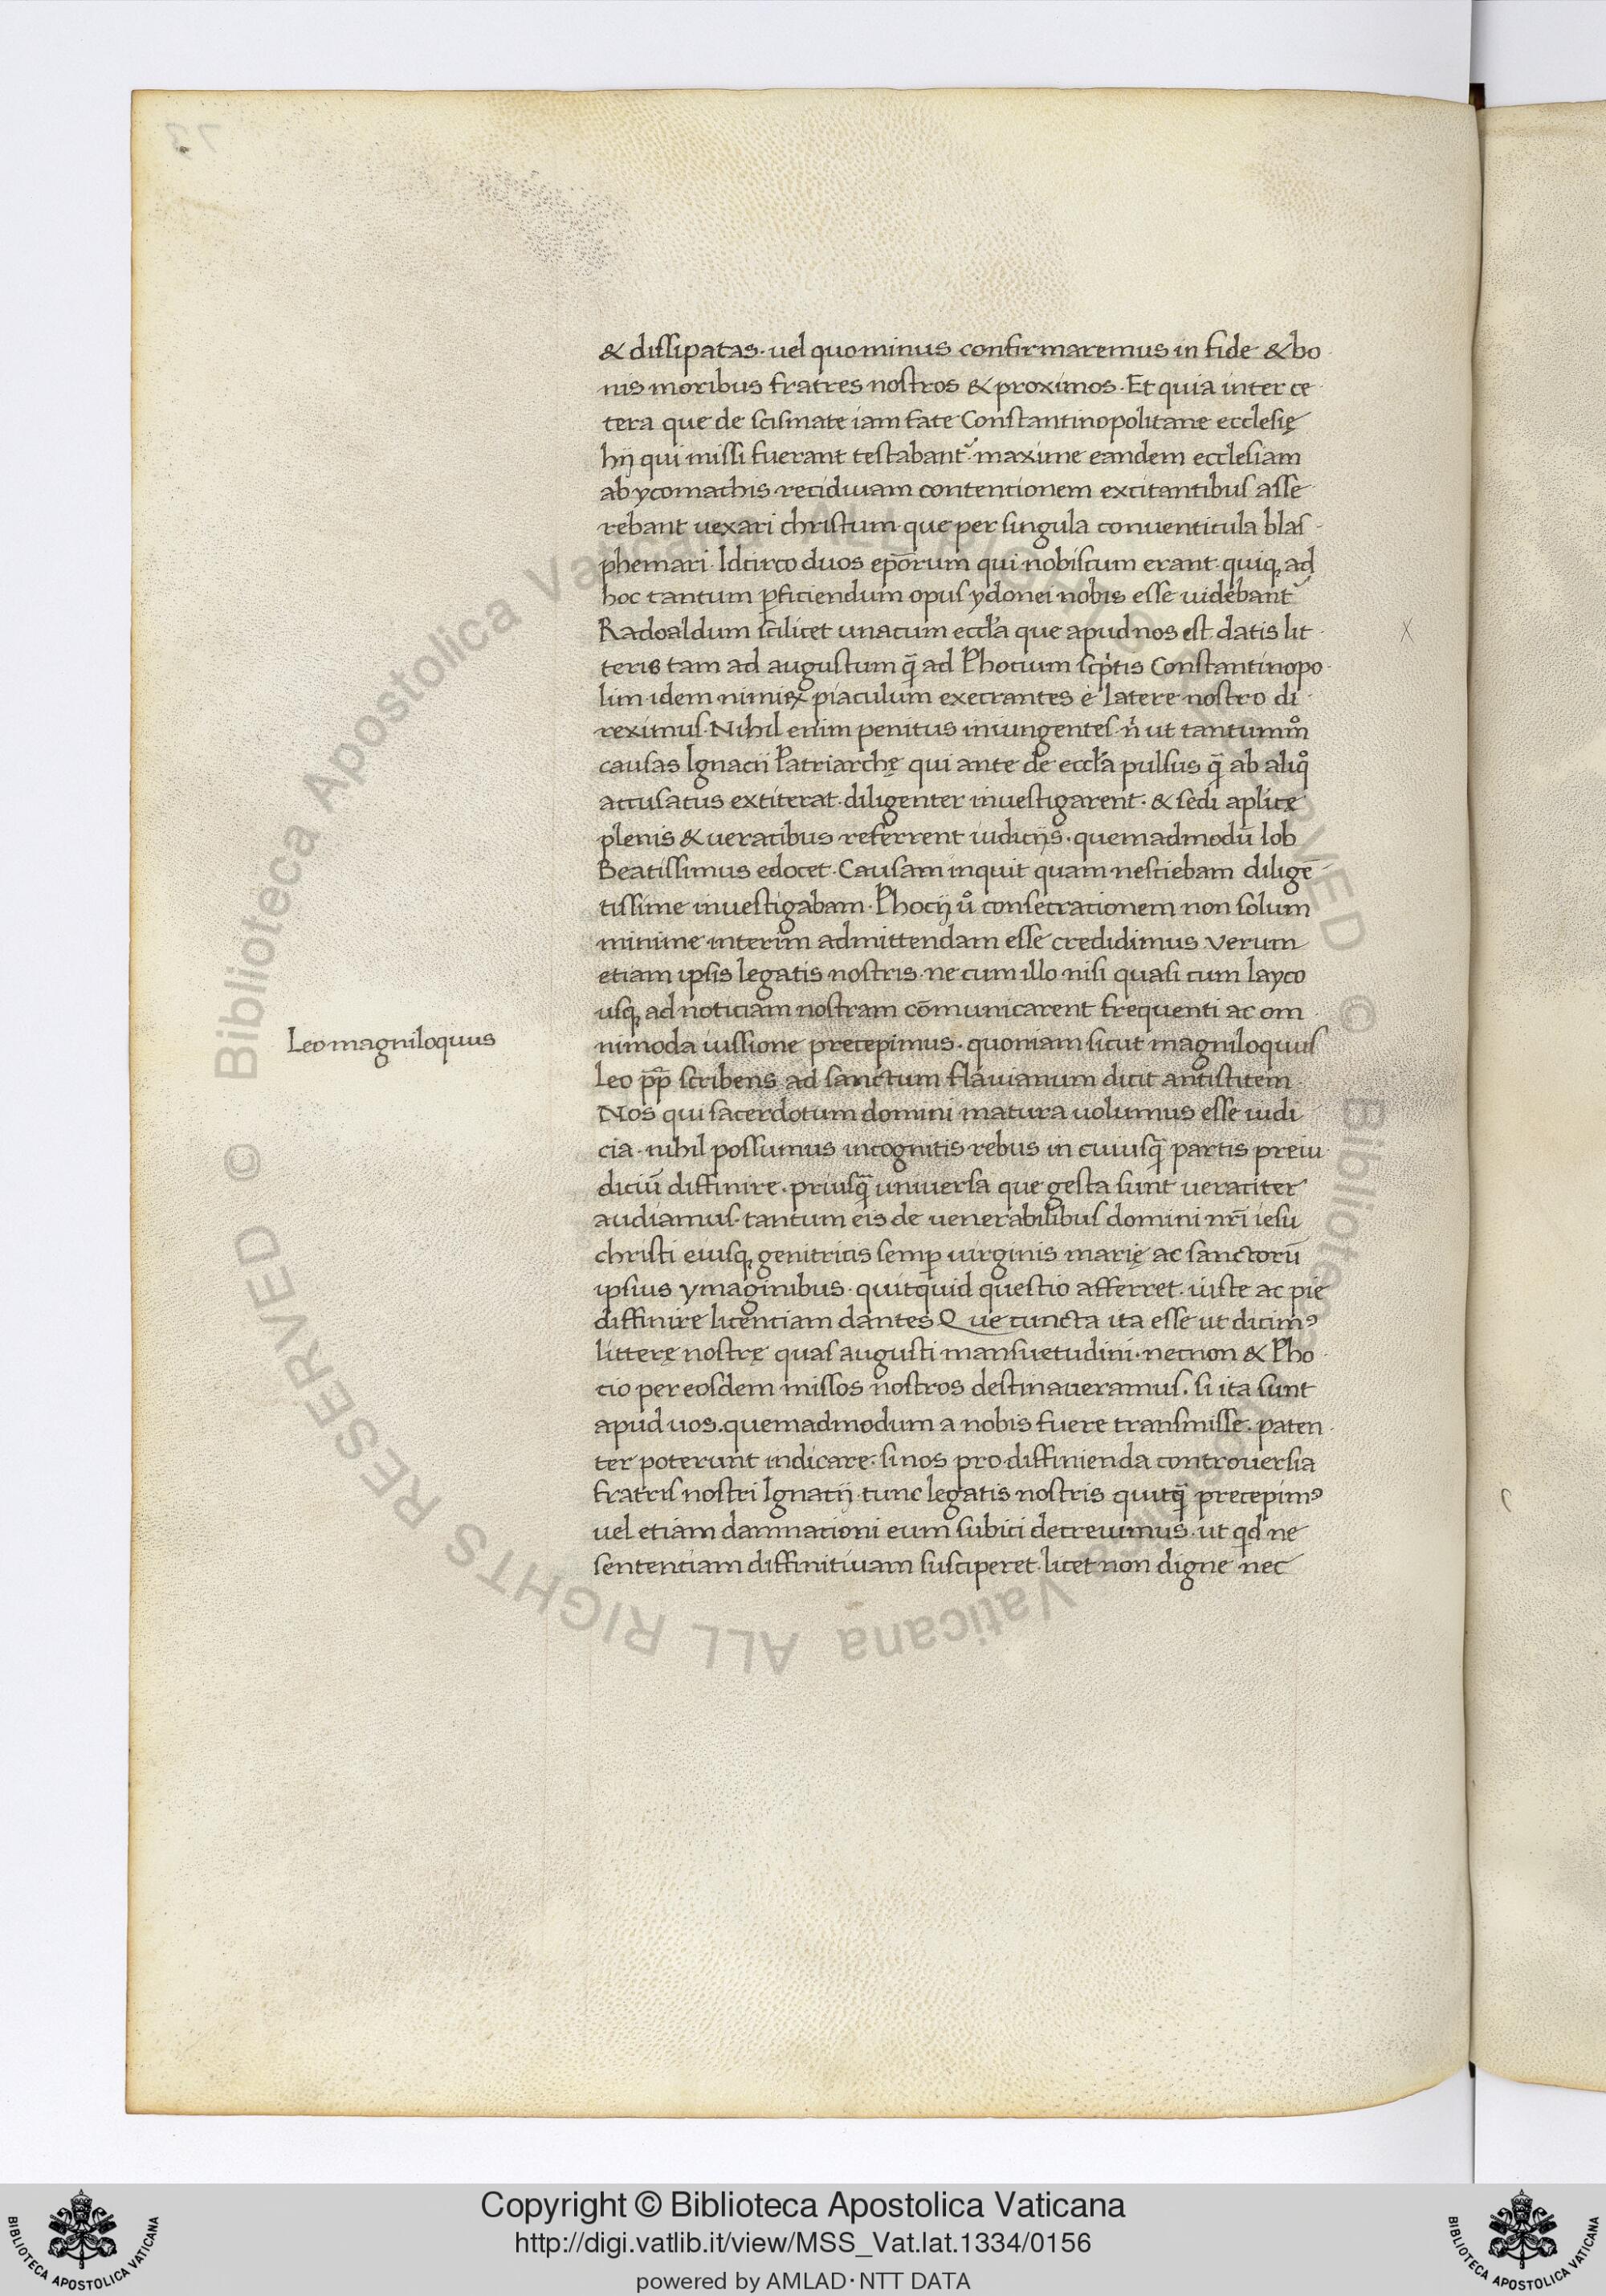 & dissipatas. uel quominus confirmaremus in fide & bo
nis moribus fratres nostros & proximos. Et quia inter ce
tera que de scismate iam fate Constantinopolitane ecclesię
hij qui missi fuerant testabant᷑ maxime eandem ecclesiam
ab ycomachis recidiuam contentionem excitantibus asse
rebant uexari christum que per singula conuenticula blas
phemari. Idcirco duos ep̄orum qui nobiscum erant quiq, ad
hoc tantum ꝑficiendum opus ydonei nobis esse uidebant᷑
Radoaldum scilicet unacum eccl'a que apud nos est datis lit
teris tam ad augustum q̄ ad Photium scp'tis Constantinopo
lim idem nimiꝝ piaculum execrantes e latere nostro di
reximus. Nihil enim penitus iniungentes n' ut tantummͦ
causas Ignacii Patriarchę qui ante de eccl'a pulsus q̄ ab aliqͦ
accusatus extiterat diligenter inuestigarent. & sedi aplice
plenis & ueracibus referrent iudicijs. quemadmodū Iob
Beatissimus edocet. Causam inquit quam nesciebam diligē
tissime inuestigabam. Phocij uͦ consecrationem non solum
minime interim admittendam esse credidimus verum
etiam ipsis legatis nostris ne cum illo nisi quasi cum layco
usq, ad noticiam nostram cōmunicarent frequenti ac om
nimoda iussione precepimus. quoniam sicut magniloquus
Leo magniloquus
Leo pp̄ scribens ad sanctum flauianum dicit antistitem
Nos qui sacerdotum domini matura uolumus esse iudi
cia. nihil possumus incognitis rebus in cuiusq̄ partis preiu
diciū diffinire. priusq̄ uniuersa que gesta sunt ueraciter
audiamus. tantum eis de uenerabilibus domini nr̄i iesu
christi eiusq, genitricis semꝑ uirginis marię ac sanctorū
ipsius ymaginibus. quitquid questio afferret. iuste ac pie
diffinire licentiam dantes Que cuncta ita esse ut dicimꝰ
litterę nostrę quas augusti mansuetudini. necnon & Pho
cio per eosdem missos nostros destinaueramus. si ita sunt
apud uos. quemadmodum a nobis fuere transmisse. paten
ter poterunt indicare. si nos pro diffinienda controuersia
fratris nostri Ignatij tunc legatis nostris quitq̄ precepimꝰ
uel etiam damnationi eum subici decreuimus. ut qd ne
sententiam diffinitiuam susciperet. licet non digne nec
Copyright © Biblioteca Apostolica Vaticana
http://digi.vatlib.it/view/MSS_Vat.lat.1334/0156
powered by AMLAD·NTT DATA
BIBLIOTECA APOSTOLICA VATICANA
BIBLIOTECA APOSTOLICA VATICANA
© Biblioteca Apostolica Vaticana ALL RIGHTS RESERVED © Biblioteca Apostolica Vaticana ALL RIGHTS RESERVED